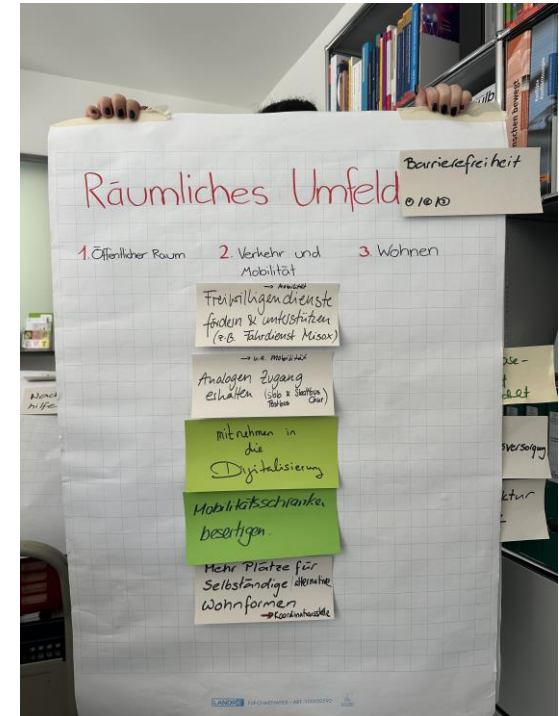 Räumliches Umfeld
Barrierefreiheit
①/②/③
1. Öffentlicher Raum
2. Verkehr und
Mobilität
3. Wohnen
→ Mobilität
Freiwilligendienste
fördern & unterstützen
(z.B. Fahrdienst Misox)
→ u.a. Mobilität
Analogen Zugang
erhalten (sbb & Stadtbus
Postbus Chur)
mitnehmen in
die
Digitalisierung
Mobilitätsschranken
beseitigen.
Mehr Plätze für
Selbständige/alternative
Wohnformen
→ Koordinationsstelle
hilfe
sversorgung
ktur
nschen bewegt
LANDRÉ